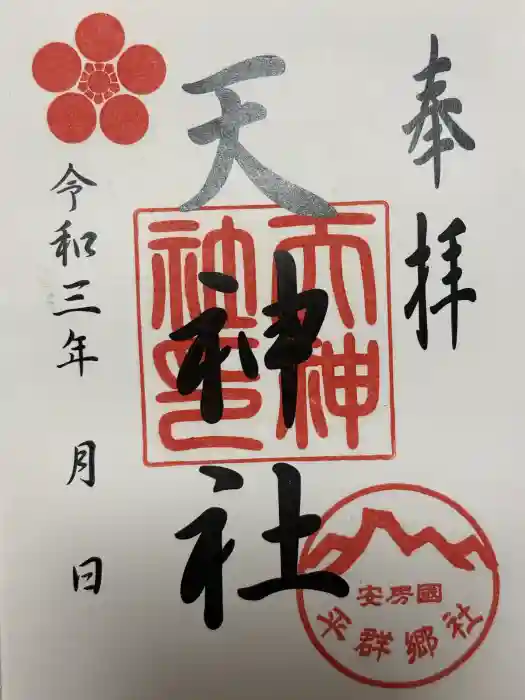 奉拝
天神社
天神社印
令和三年 月 日
安房國
平群郷社